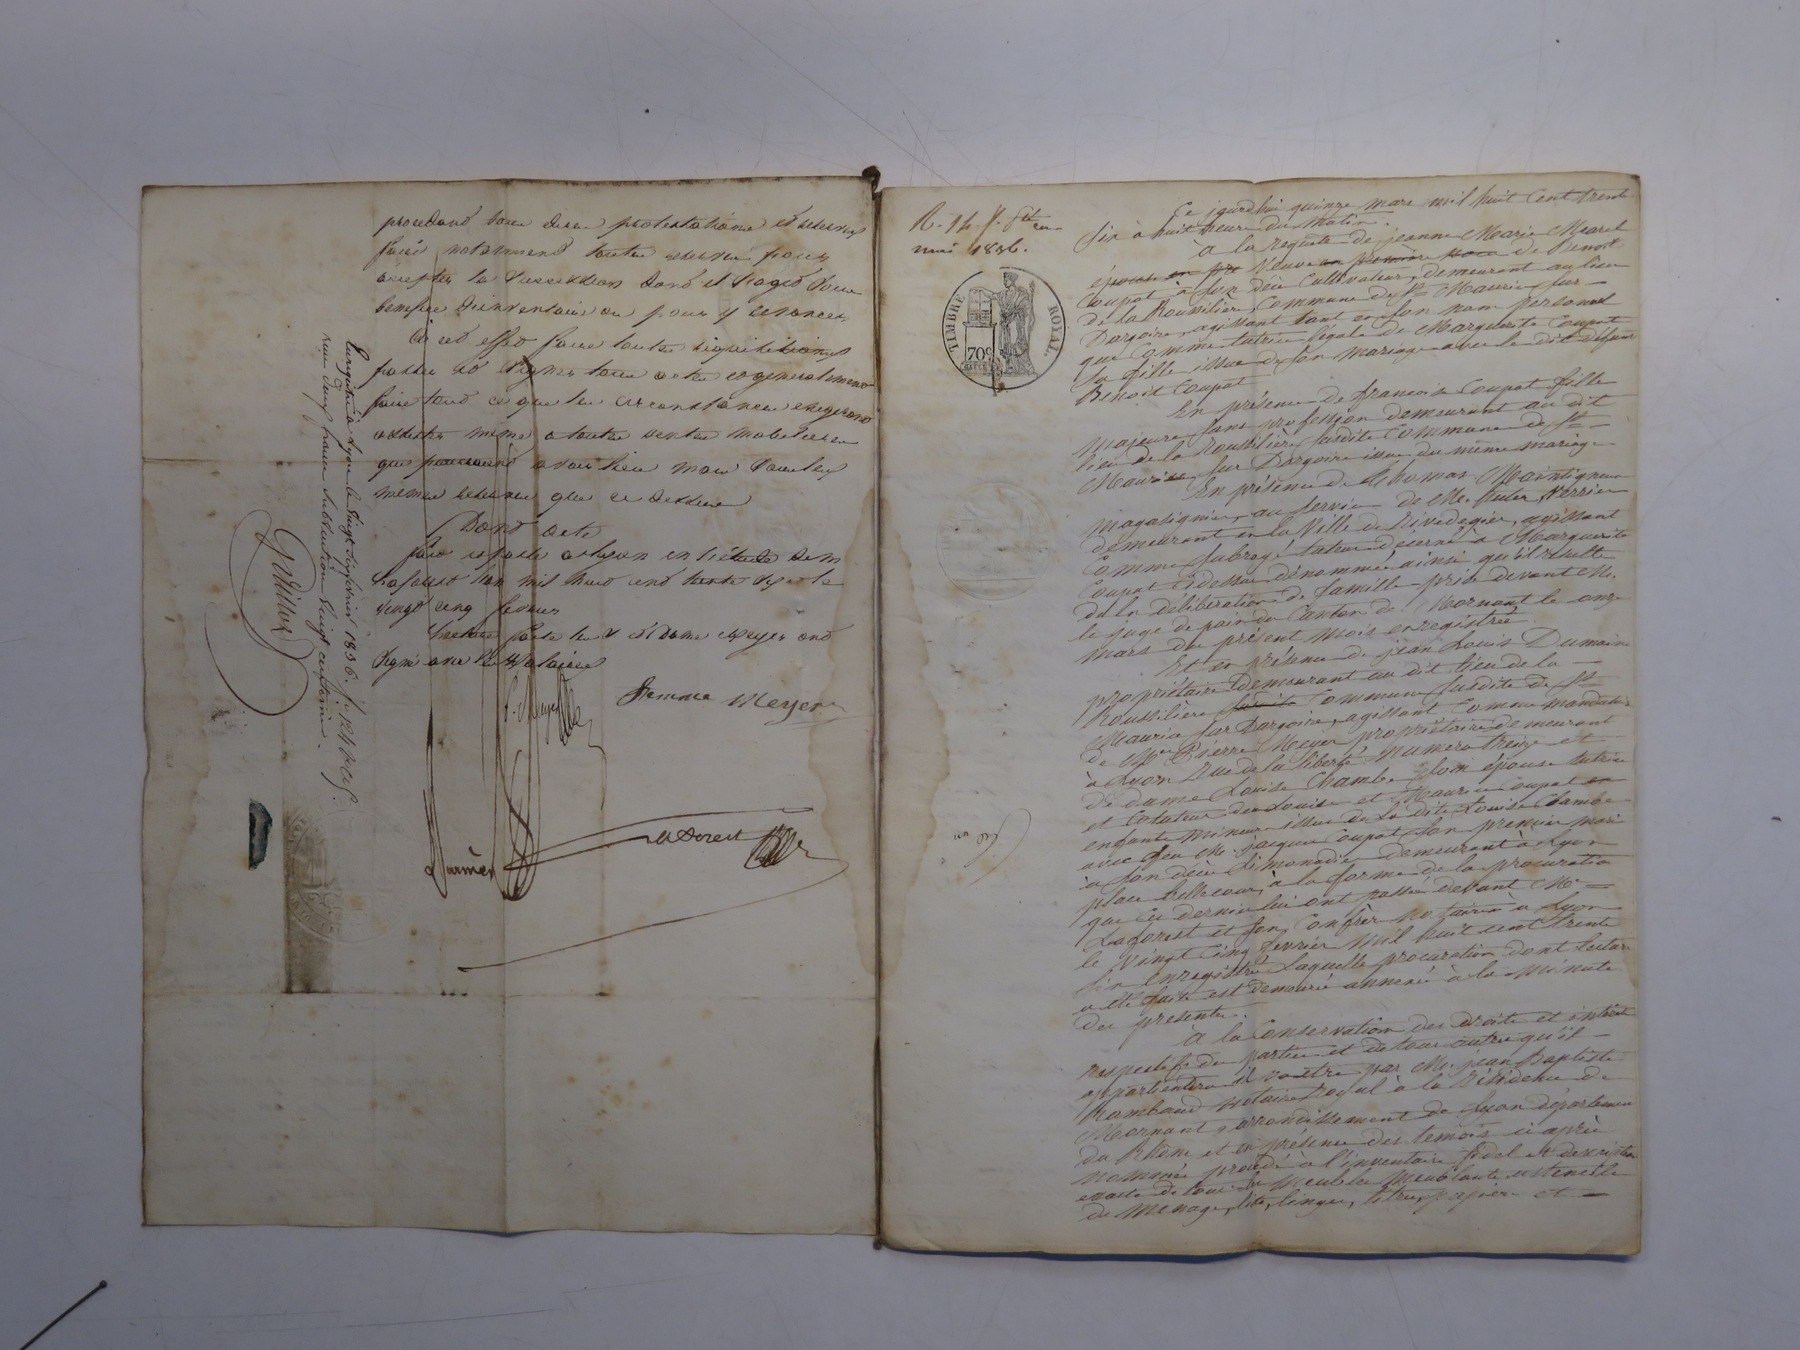 procedand tous dires protestations et réserves
faire notamment toutes réserves pour
accepter la succession dont il s'agit sous
bénéfice d'inventaire ou pour y renoncer
A cet effet faire toutes réquisitions
passer et signer tous actes et généralement
faire tout ce que les circonstances exigeront
assister même a toutes ventes mobilières
que pourraient avoir lieu mais sous les
mêmes réserves que ce dessus
Dont acte
fait et passé a Lyon en l'étude de m
Laforest l'an mil huit cent trente six le
vingt cinq fevrier
lecture faite les r et dame Meyer ont
signé avec les Notaires
Femme Meyer
Laforest
Enregistré à Lyon le vingt six février 1836.
reçu deux francs substitution vingt centimes.
R. 14. f. st en
mai 1836.
TIMBRE ROYAL
70c
Ce jourdhui quinze mars mil huit Cent trente
six à huit heure du Matin.
à la requete de jeanne Marie Morel
épouse en pre Veuve en première noce de Benoit
Coupat à son décès Cultivateur, demeurant au lieu
de la Roussilière, Commune de St Maurice sur
Dargoire, agissant tant en son nom personnel
que Comme tutrice légale de Marguerite Coupat
sa fille issue de son mariage avec le dit défunt
Benoit Coupat
En présence de françoise Coupat fille
Majeure sans profession demeurant au dit
lieu de la Roussilière susdite Commune de St
Maurice sur Dargoire issue du même mariage
En présence de thomas Maintigneux
magasignier, au service de Mr. Verrier
demeurant en la Ville de Rivedegier, agissant
Comme subrogé tuteur décerné à Marguerite
Coupat ci dessus dénommée ainsi qu'il résulte
de la délibération de famille prise devant Mr.
le juge de paix du Canton de Mornant le onze
Mars du présent mois enregistrée.
Et en présence de jean Louis Dumain
propriétaire demeurant au dit lieu de la
Roussilière susdite Commune susdite de St
Maurice sur Dargoire, agissant Comme mandataire
de Mr Pierre Meyer propriétaire demeurant
à Lyon Rue de la liberté Numero treize et
de dame Louise Chambe son épouse tutrice
et cotuteur de Louise et Maurice Coupat en
enfants mineurs issus de la dite Louise Chambe
avec feu Mr. jacques Coupat son premier mari
à son décès Limonadier demeurant à Lyon
place bellecour, à la forme de la procuration
que ces derniers lui ont passée devant Me
Laforest et son Confrère Notaires à Lyon
le vingt Cinq fevrier Mil huit cent trente
six enregistrée Laquelle procuration dont lecture
a été faite est demeurée annexée à la Minute
des présentes.
A la Conservation des droits et intérêt
respectifs des parties et de tous autres qu'il
appartiendra il va être par Me. jean Baptiste
Rambaud Notaire Royal à la Résidence de
Mornant, arrondissement de Lyon département
du Rhône et en présence des témois ci après
nommés procédé à l'inventaire fidel et description
exacte de tous les Meubles Meublants ustensile
de Ménage, lits, linges, titres, papiers et